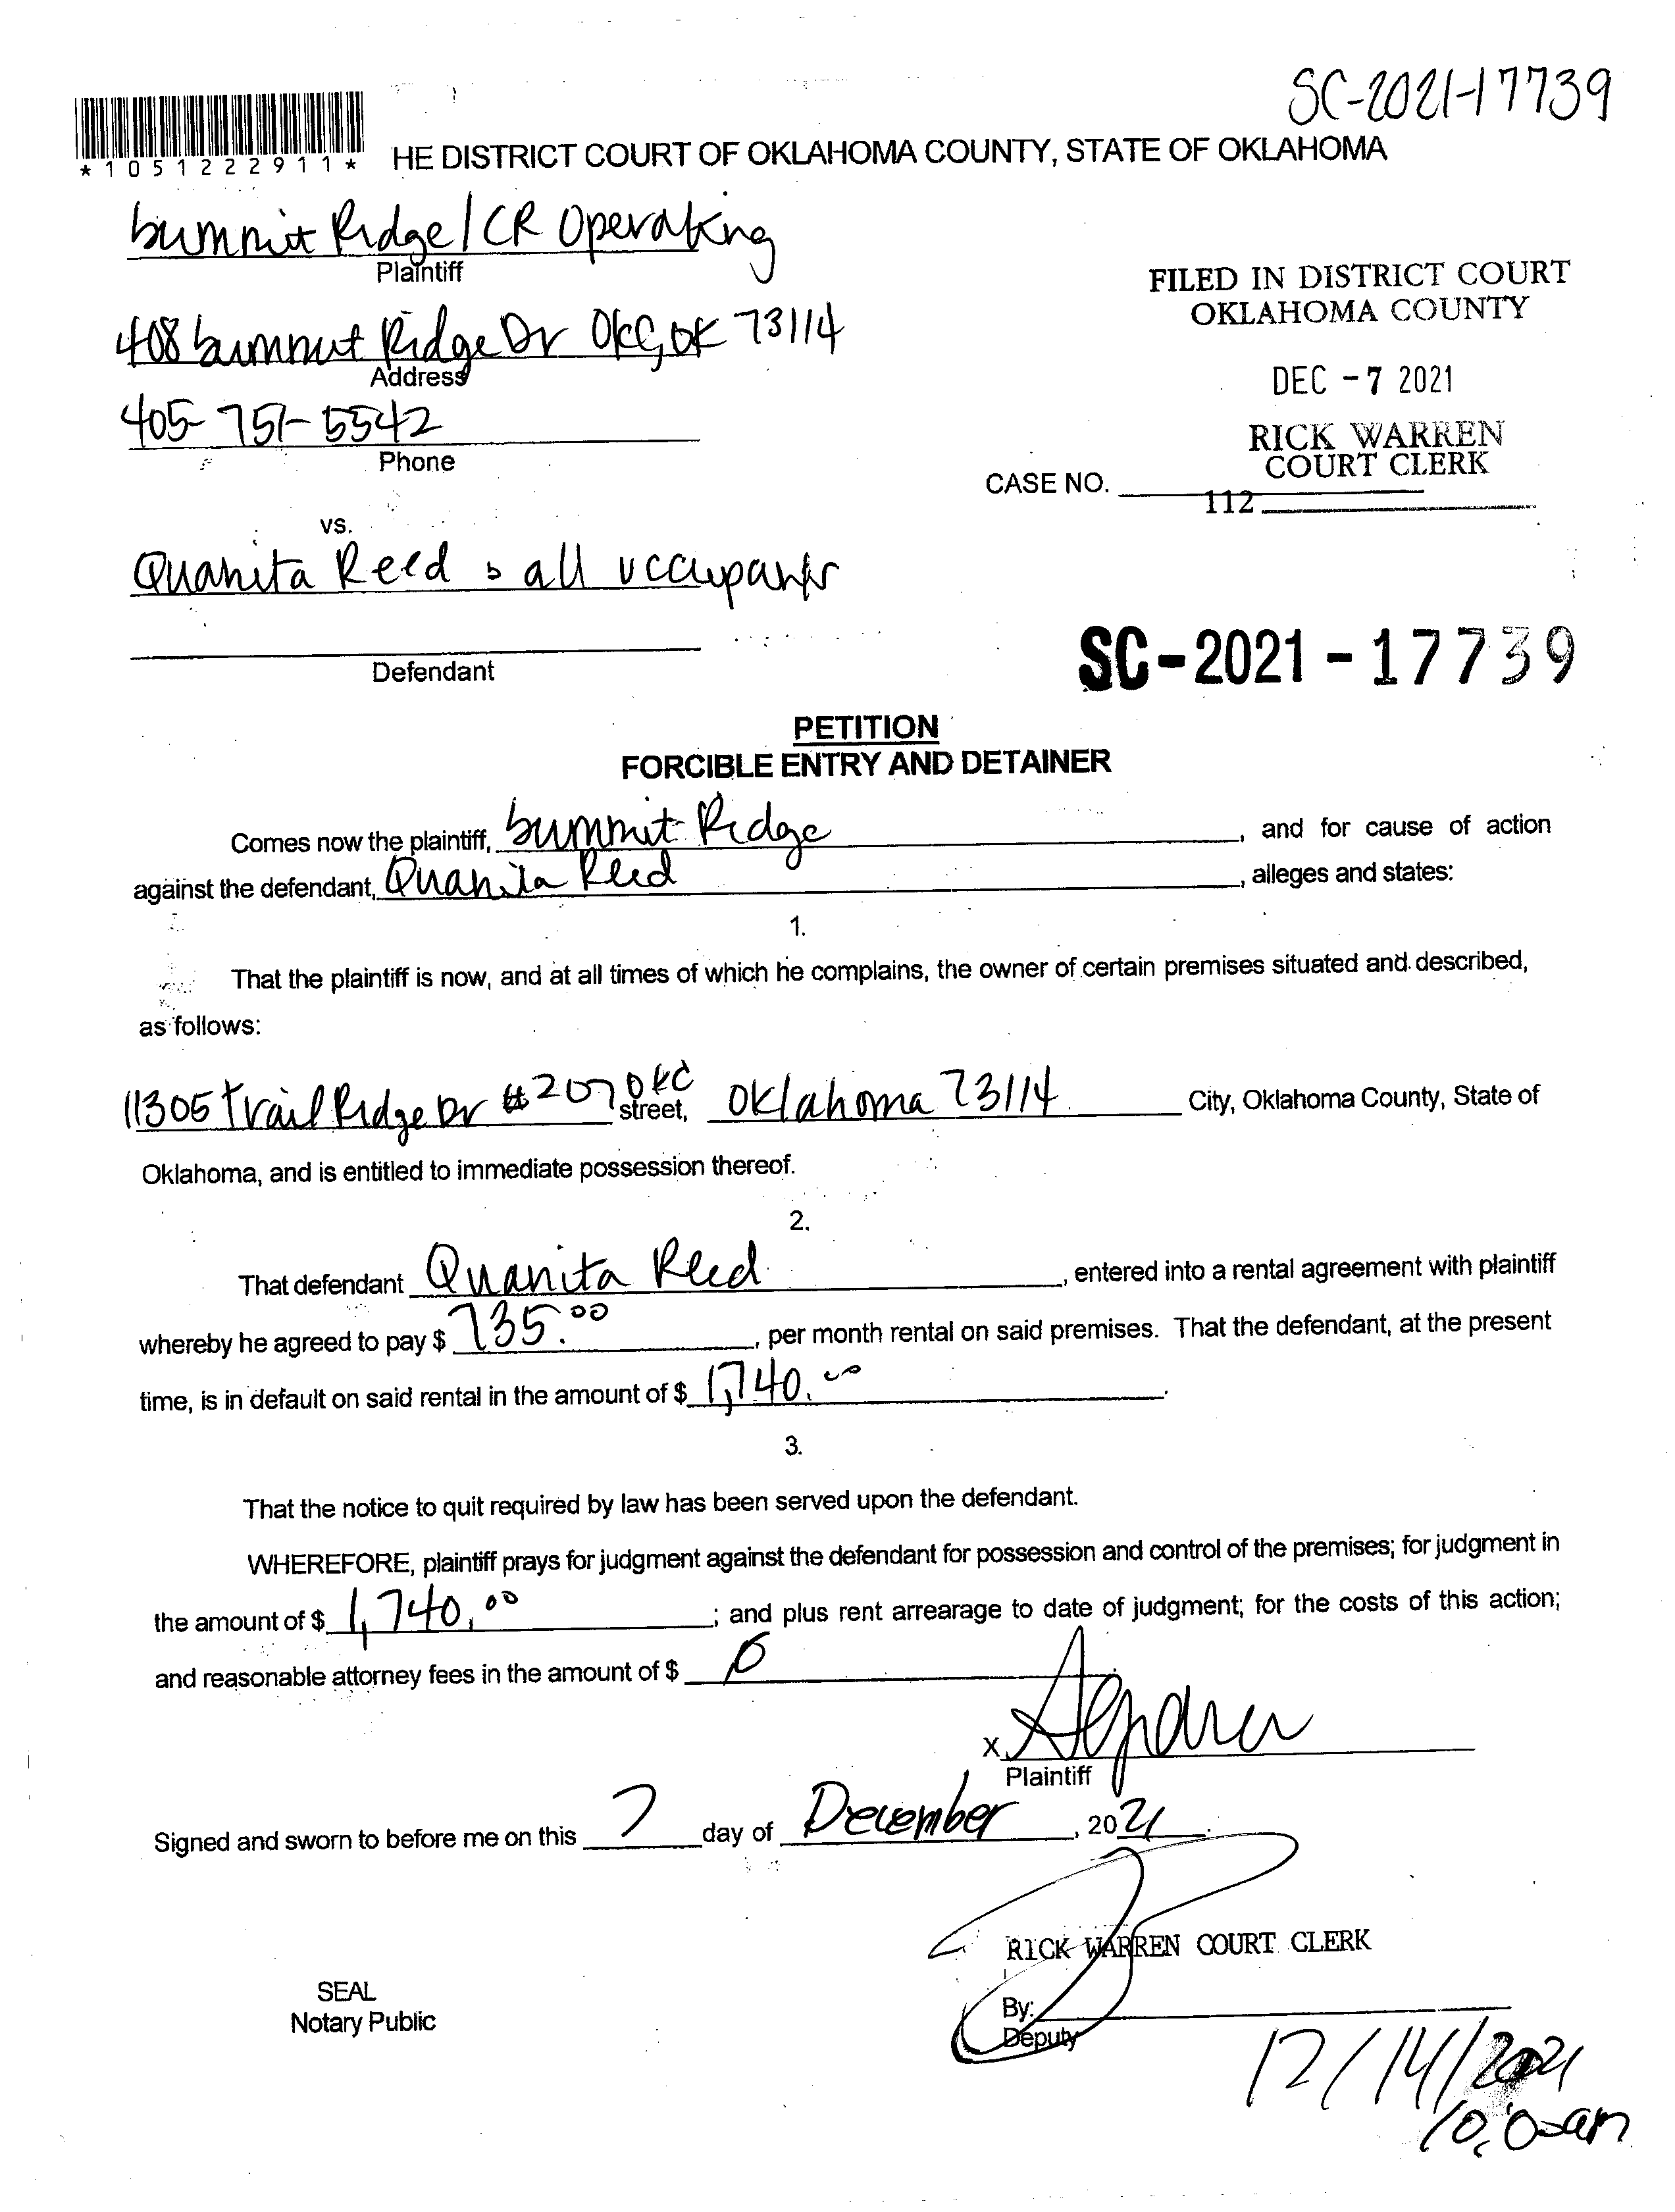 SC-2021-17739
*1051222911*
HE DISTRICT COURT OF OKLAHOMA COUNTY, STATE OF OKLAHOMA
Summit Ridge/CR Operating
Plaintiff
408 Summit Ridge Dr OKC, OK 73114
Address
405-751-5542
Phone
FILED IN DISTRICT COURT
OKLAHOMA COUNTY
DEC -7 2021
RICK WARREN
COURT CLERK
CASE NO.
112
vs.
Quanita Reed & all occupants
Defendant
SC-2021-17739
PETITION
FORCIBLE ENTRY AND DETAINER
Comes now the plaintiff, Summit Ridge, and for cause of action
against the defendant, Quanita Reed, alleges and states:
1.
That the plaintiff is now, and at all times of which he complains, the owner of certain premises situated and described,
as follows:
11305 Trail Ridge Dr #207 OKC street, Oklahoma 73114 City, Oklahoma County, State of
Oklahoma, and is entitled to immediate possession thereof.
2.
That defendant Quanita Reed, entered into a rental agreement with plaintiff
whereby he agreed to pay $ 735.00, per month rental on said premises. That the defendant, at the present
time, is in default on said rental in the amount of $ 1,740.00.
3.
That the notice to quit required by law has been served upon the defendant.
WHEREFORE, plaintiff prays for judgment against the defendant for possession and control of the premises; for judgment in
the amount of $ 1,740.00; and plus rent arrearage to date of judgment; for the costs of this action;
and reasonable attorney fees in the amount of $ 0
X
Plaintiff
Signed and sworn to before me on this 7 day of December, 2021.
RICK WARREN COURT CLERK
SEAL
Notary Public
By:
Deputy
12/14/2021
10:00am